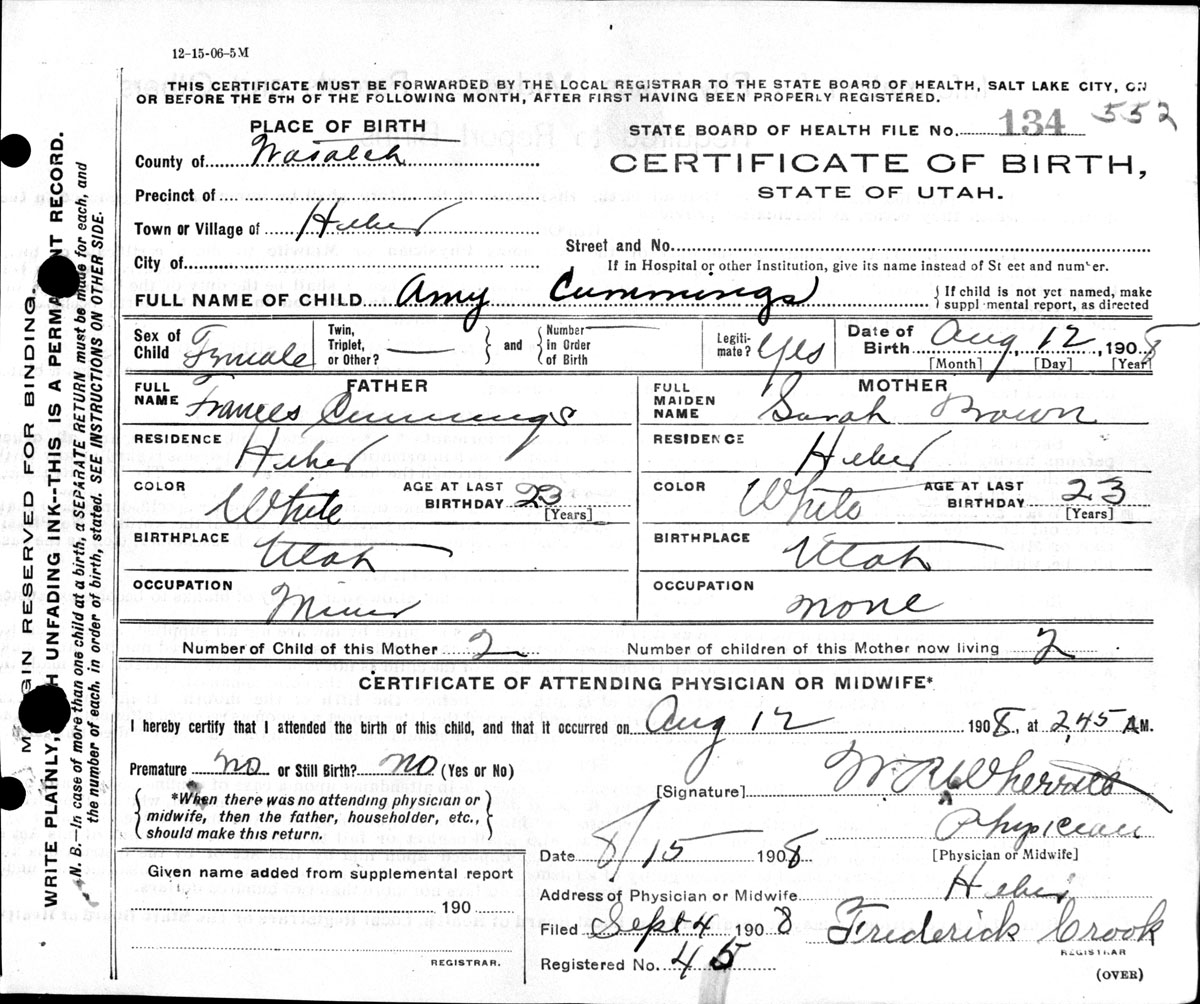 12-15-06-5M
THIS CERTIFICATE MUST BE FORWARDED BY THE LOCAL REGISTRAR TO THE STATE BOARD OF HEALTH, SALT LAKE CITY, ON
OR BEFORE THE 5TH OF THE FOLLOWING MONTH, AFTER FIRST HAVING BEEN PROPERLY REGISTERED.
PLACE OF BIRTH
STATE BOARD OF HEALTH FILE No. 134 552
County of Wasatch
CERTIFICATE OF BIRTH,
STATE OF UTAH.
Precinct of
Town or Village of Heber
Street and No.
City of
If in Hospital or other Institution, give its name instead of St eet and number.
FULL NAME OF CHILD Amy Cummings { If child is not yet named, make
suppl mental report, as directed
Sex of Child Female
Twin, Triplet, or Other? —
and
Number in Order of Birth —
Legiti-mate? Yes
Date of Birth Aug, 12, 1908
[Month] [Day] [Year]
FATHER
FULL NAME Frances Cummings
RESIDENCE Heber
COLOR White
AGE AT LAST BIRTHDAY 23
[Years]
BIRTHPLACE Utah
OCCUPATION Miner
MOTHER
FULL MAIDEN NAME Sarah Brown
RESIDENCE Heber
COLOR White
AGE AT LAST BIRTHDAY 23
[Years]
BIRTHPLACE Utah
OCCUPATION None
Number of Child of this Mother 2
Number of children of this Mother now living 2
CERTIFICATE OF ATTENDING PHYSICIAN OR MIDWIFE*
I hereby certify that I attended the birth of this child, and that it occurred on Aug 12 1908, at 2,45 A M.
Premature no or Still Birth? no (Yes or No)
[Signature] W R Wherritt
*When there was no attending physician or
midwife, then the father, householder, etc.,
should make this return.
Physician
[Physician or Midwife]
Date 8/15 1908
Given name added from supplemental report
190
REGISTRAR.
Address of Physician or Midwife Heber
Filed Sept 4 1908 Frederick Crook
REGISTRAR
Registered No. 45
(OVER)
MARGIN RESERVED FOR BINDING.
WRITE PLAINLY, UNFADING INK--THIS IS A PERMANENT RECORD.
N. B.—In case of more than one child at a birth, a SEPARATE RETURN must be made for each, and
the number of each, in order of birth, stated. SEE INSTRUCTIONS ON OTHER SIDE.